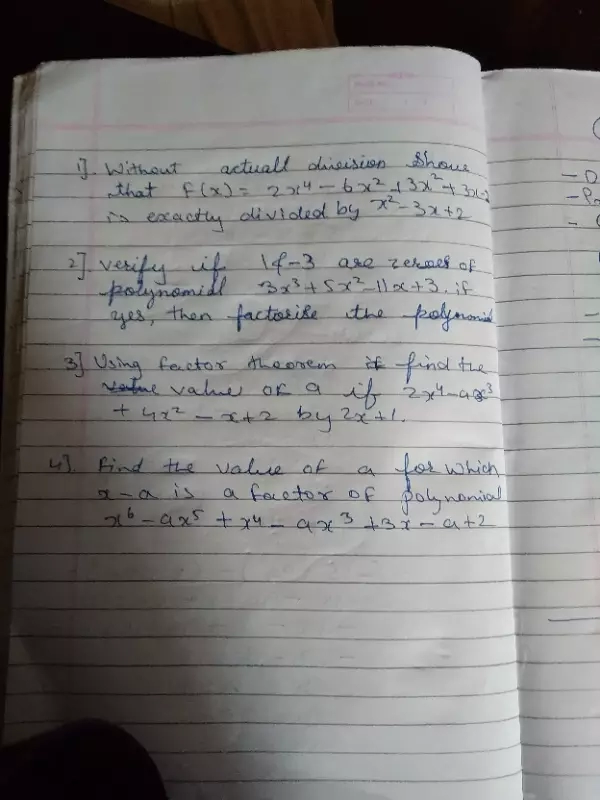 1]. Without actuall division Show
that f(x) = 2x⁴ - 6x² + 3x² + 3x - 2
is exactly divided by x² - 3x + 2
2]. Verify if 1 & -3 are zeroes of
polynomial 3x³ + 5x² - 11x + 3. if
yes, then factorise the polynomial
3] Using factor theorem if find the
value value of a if 2x⁴ - ax³
+ 4x² - x + 2 by 2x + 1.
4]. Find the value of a for which
x - a is a factor of polynomial
x⁶ - ax⁵ + x⁴ - ax³ + 3x - a + 2